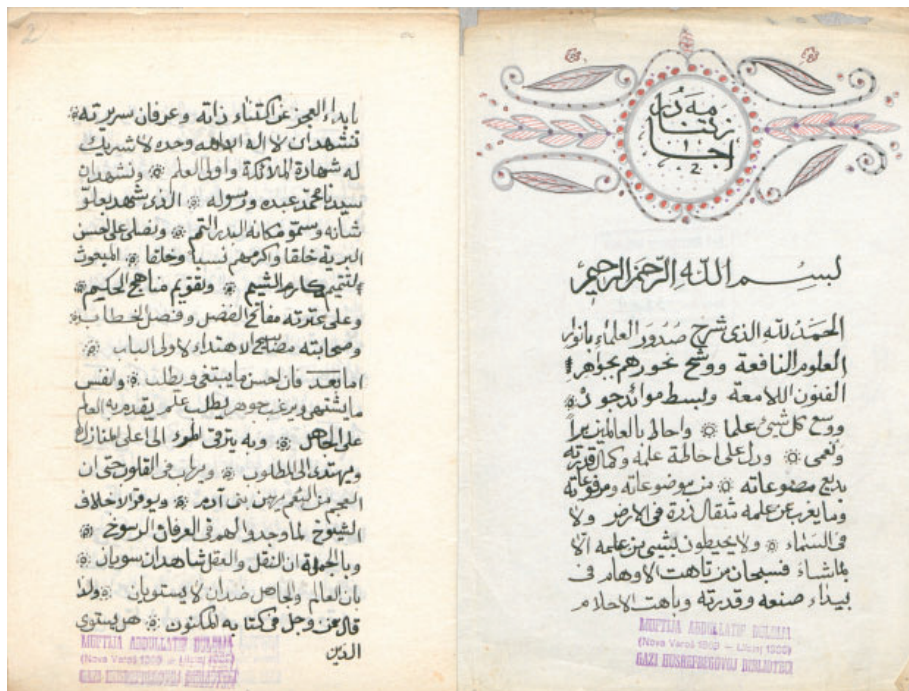 بسم الله الرحمن الرحيم
الحمد لله الذى شرح صدور العلماء بانوار
العلوم النافعة ووشح نحورهم بجواهر
الفنون اللامعة وبسط موائد جوده
ووسع كل شيئ علما واحاط بالعالمين براً
ونعمى ودل على احاطة علمه وكمال قدرته
بديع مصنوعاته من موضوعاته ومرفوعاته
وما يغرب عن علمه مثقال ذرة فى الارض ولا
فى السماء ولا يحيطون بشيئ من علمه الا
بما شاء فسبحان من تاهت الاوهام فى
بيداء صنعه وقدرته وباهت الاحلام
MUFTIJA ABDULLATIF
(Nova Varoš 1909 – Ulcinj 1986)
GAZI HUSREFBEGOVOJ BIBLIOTECI
2
بابداء العجز عن اكتناء ذاته وعرفان سريرته
نشهد ان لا اله الا الله وحده لا شريك
له شهادة الملائكة واولى العلم ونشهد ان
سيدنا محمد عبده ورسوله الذى شهد بعلو
شانه وسمو مكانه البدر التم ونصلى على احسن
البرية خلقا واكرمهم نسبا وخلقا المبعوث
لتتميم مكارم الشيم وتقويم مناهج الحكيم
وعلى عترته مفاتح الفضل وفصل الخطاب
وصحابته مصابيح الاهتداء لاولى الباب
اما بعد فان احسن ما يبتغى ويطلب وانفس
ما يشتهى ويرغب جوهر يطلب علم يقدم به العالم
على الجاهل وبه يترقى المرء الى اعلى المنازل
ويهتدى الى المطلوب ويهاب فى القلوب حتى ان
العجم من النعم يرهبن بنى آدم ويوقر الاخلاف
الشيوخ لما وجدوا لهم فى العرفان والرسوخ
وبالجملة ان النقل والعقل شاهدان سويان
بان العالم والجاهل ضدان لا يستويان ولذا
قال عز وجل فى كتابه المكنون هل يستوى
الذين
MUFTIJA ABDULLATIF
(Nova Varoš 1909 – Ulcinj 1986)
GAZI HUSREFBEGOVOJ BIBLIOTECI